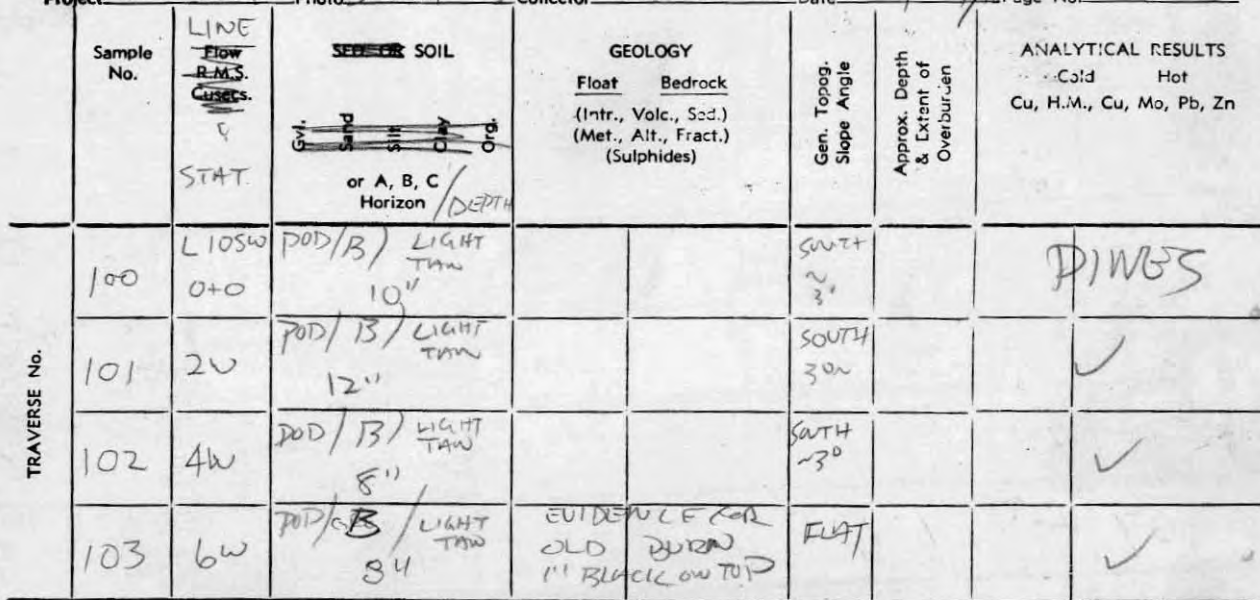 Project Photo Collector Date Page No.
Sample No.
LINE
Flow
R.M.S.
Cusecs.
&
STAT.
SED. OR SOIL
Gvl. Sand Silt Clay Org.
or A, B, C
Horizon / DEPTH
GEOLOGY
Float Bedrock
(Intr., Volc., Sed.)
(Met., Alt., Fract.)
(Sulphides)
Gen. Topog.
Slope Angle
Approx. Depth
& Extent of
Overburden
ANALYTICAL RESULTS
Cold Hot
Cu, H.M., Cu, Mo, Pb, Zn
TRAVERSE No.
100
L105W
0+0
POD/B/ LIGHT
TAN
10"
SOUTH
~
3°
PINES
101
2W
POD/B/ LIGHT
TAN
12"
SOUTH
3°~
✓
102
4W
POD/B/ LIGHT
TAN
8"
SOUTH
~3°
✓
103
6W
POD/B/LIGHT
TAN
EVIDENCE FOR
OLD BURN
1" BLACK ON TOP
FLAT
✓